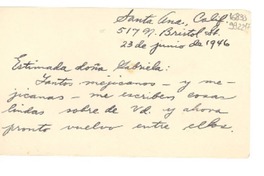 Santa Ana, Calif.
517 N. Bristol St.
23 de junio de 1946
Estimada doña Gabriela:
Tantos mejicanos - y me-
jicanas - me escriben cosas
lindas sobre de Vd. y ahora
pronto vuelvo entre ellos.